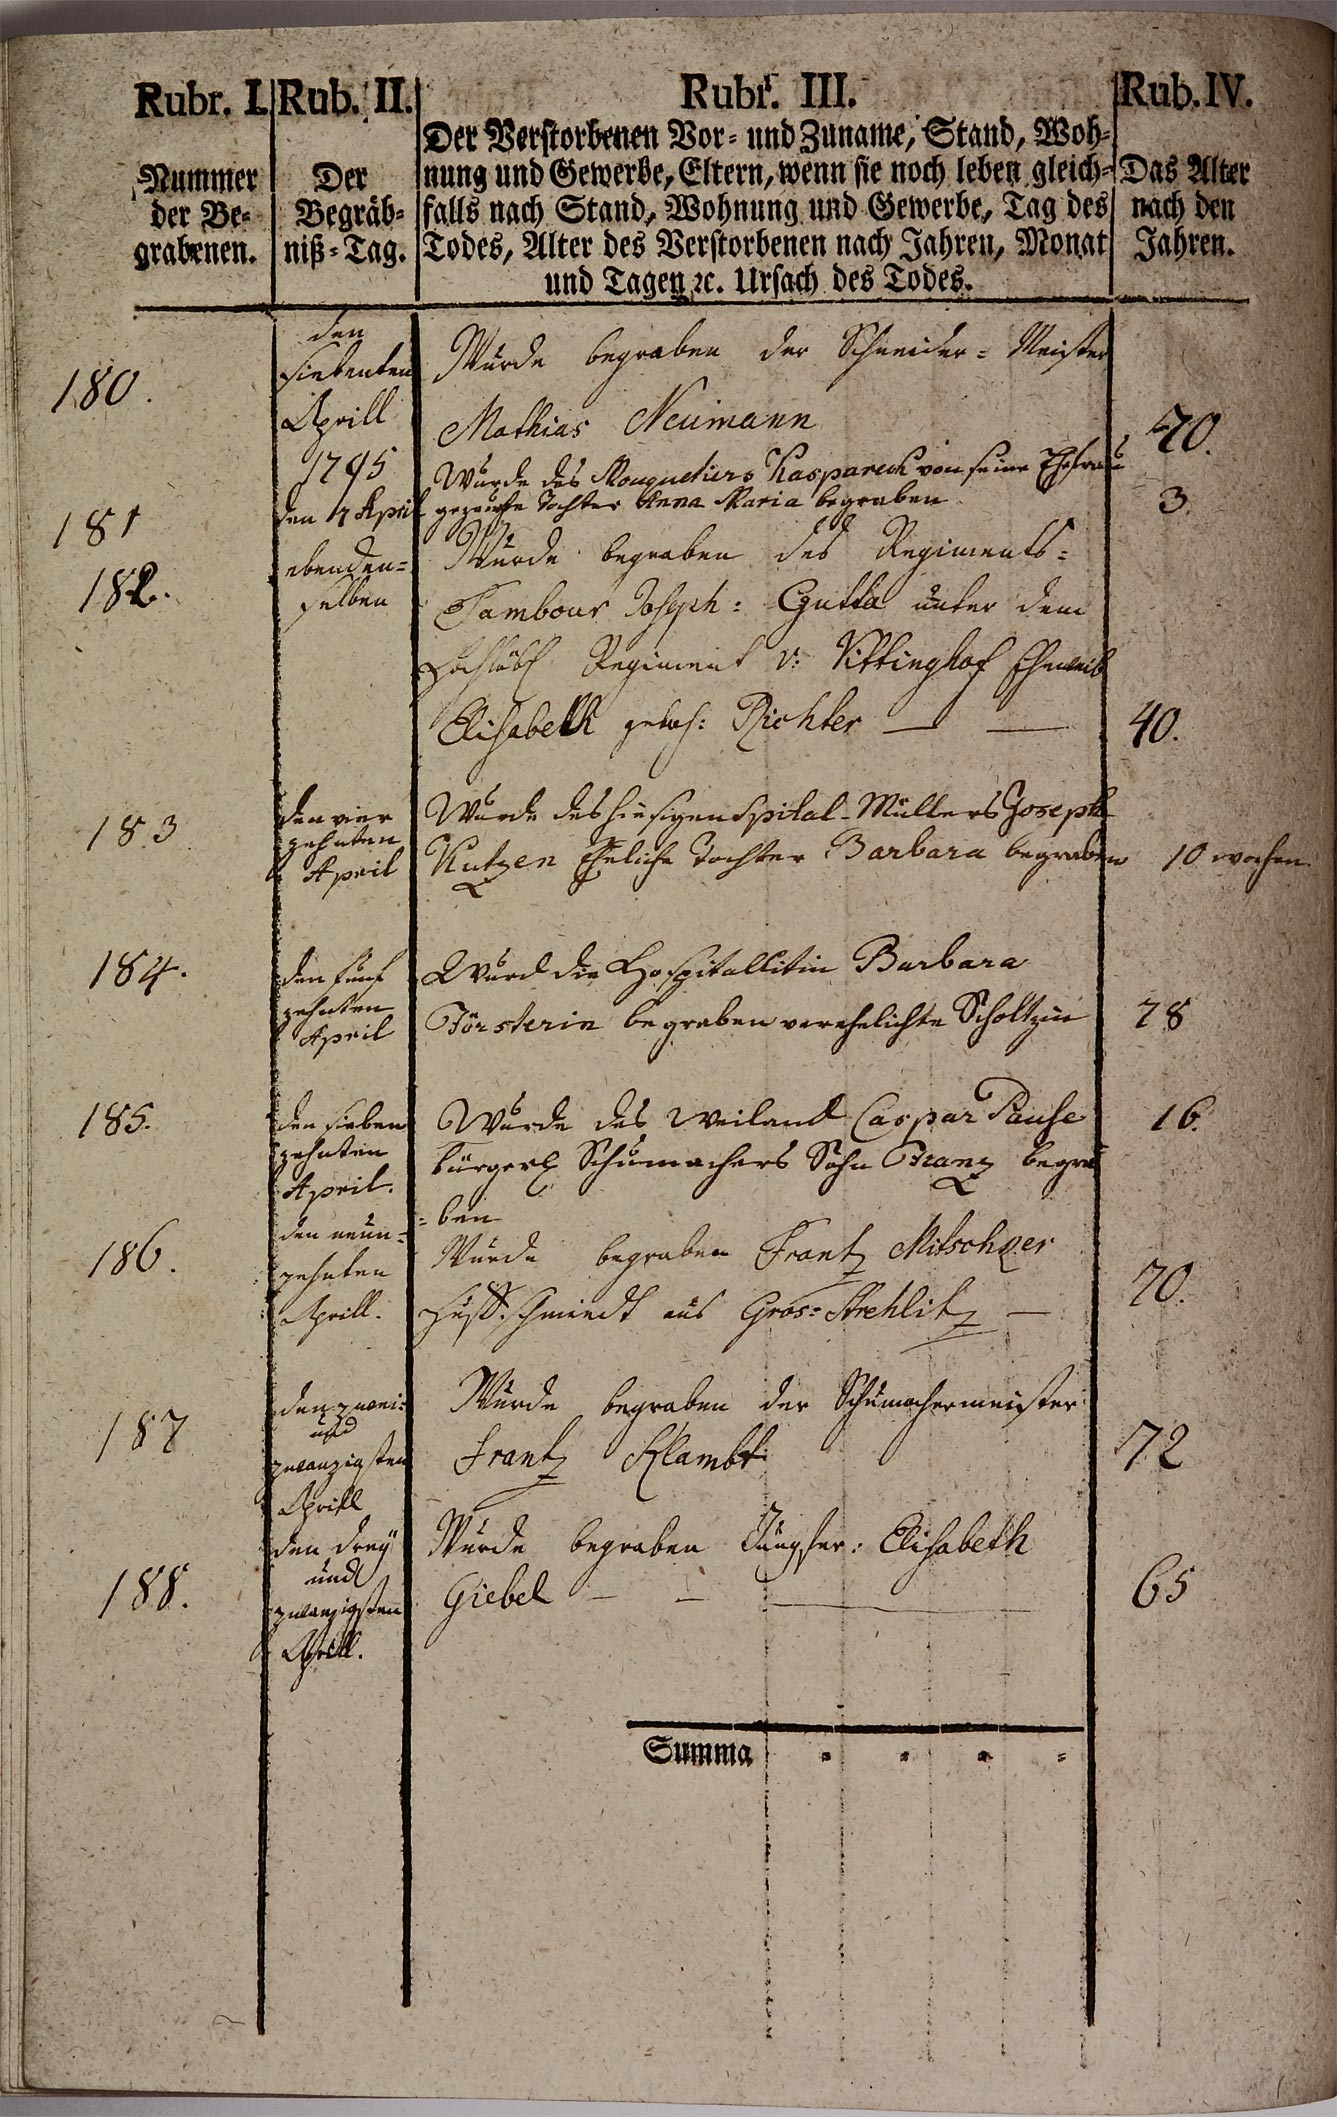 Rubr. I.
Nummer
der Be-
grabenen.
Rub. II.
Der
Begräb-
niß-Tag.
Rubr. III.
Der Verstorbenen Vor- und Zuname, Stand, Woh-
nung und Gewerbe, Eltern, wenn sie noch leben gleich-
falls nach Stand, Wohnung und Gewerbe, Tag des
Todes, Alter des Verstorbenen nach Jahren, Monat
und Tagen ꝛc. Ursach des Todes.
Rub. IV.
Das Alter
nach den
Jahren.
180.
den
siebenten
Aprill
1795
Wurde begraben der Schneider-Meister
Mathias Neumann
70.
181
den 7 April
Wurde des Mousquetiers Kasparek von seiner Ehefrau
gezeugte Tochter Anna Maria begraben
3.
182.
ebenden-
selben
Wurde begraben des Regiments-
Tambour Joseph: Gutta unter dem
Hochlöbl Regiment v: Vittinghof Eheweib
Elisabeth geboh: Richter
40.
183
den vier
zehnten
April
Wurde des hiesigen Spital-Müllers Joseph
Kutzen Eheliche Tochter Barbara begraben
10 wochen.
184.
den fünf
zehnten
April
Wurd die Hospitallitin Barbara
Försterin begraben verehelichte Scholtzin
78
185.
den sieben
zehnten
April.
Wurde des weiland Caspar Pause
bürgerl Schumachers Sohn Franz begra
-ben
16.
186.
den neun-
zehnten
Aprill.
Wurde begraben Frantz Mitschger
Huff.schmiedt aus Gros-Strehlitz
70.
187
den zwei-
und
zwanzigsten
Aprill
Wurde begraben der Schumachermeister
Frantz Klambt
72
188.
den drey
und
zwanzigsten
Aprill.
Wurde begraben Jungfer: Elisabeth
Giebel
65
Summa